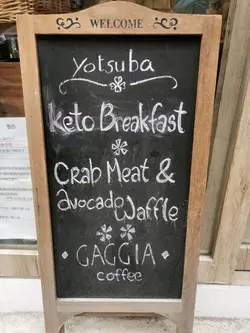 WELCOME
Yotsuba
Keto Breakfast
Crab Meat &
avocado Waffle
GAGGIA
coffee